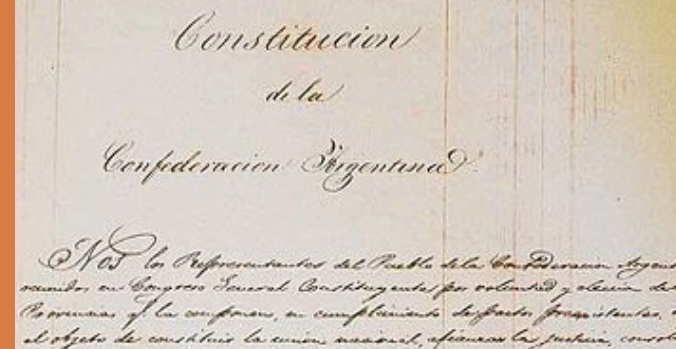 Constitucion
de la
Confederacion Argentina
Nos los Representantes del Pueblo de la Confederacion Argent
reunidos en Congreso General Constituyente por voluntad y eleccion de
Provincias q̄ la componen, en cumplimiento de pactos preexistentes,
el objeto de constituir la union nacional, afianzar la justicia, consol